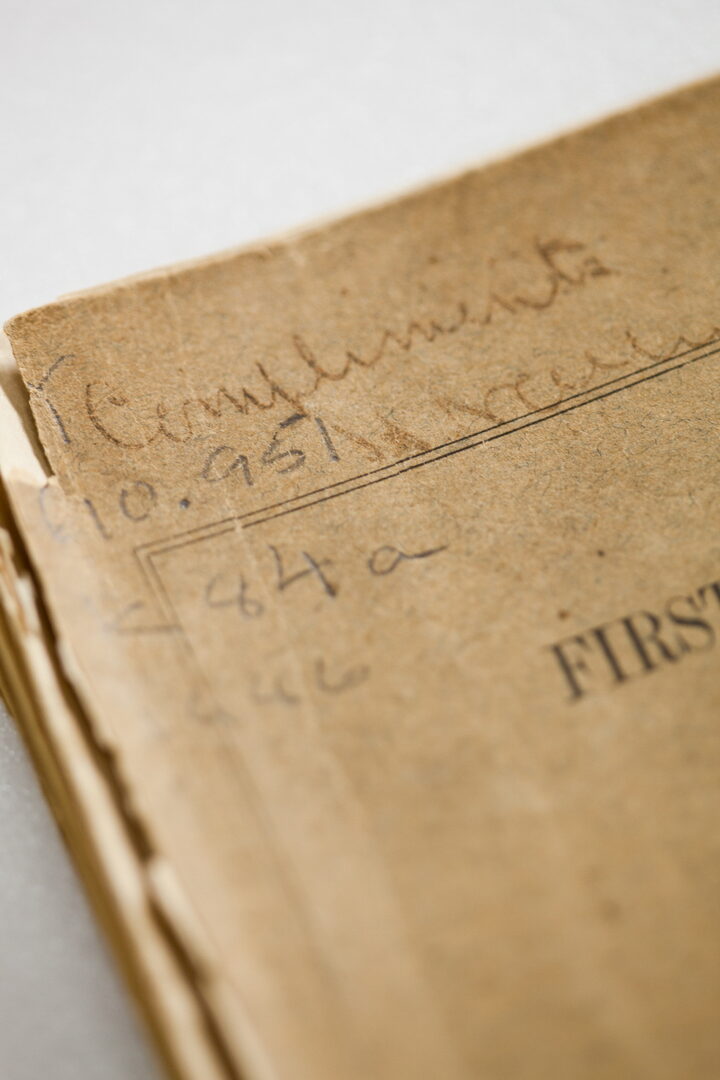 Compliments
Y
610.951
< 84a
FIRST